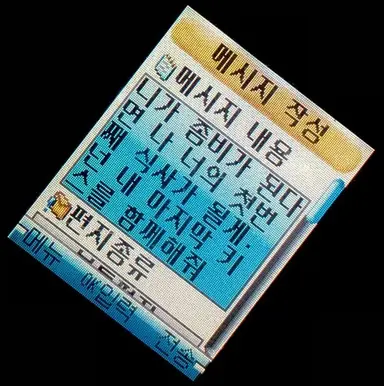 메시지 작성
메시지 내용
니가 좀비가 된다
면 나 너의 첫번
째 식사가 될게.
넌 내 마지막 키
스를 함께해줘
편지종류
메뉴 OK입력 전송